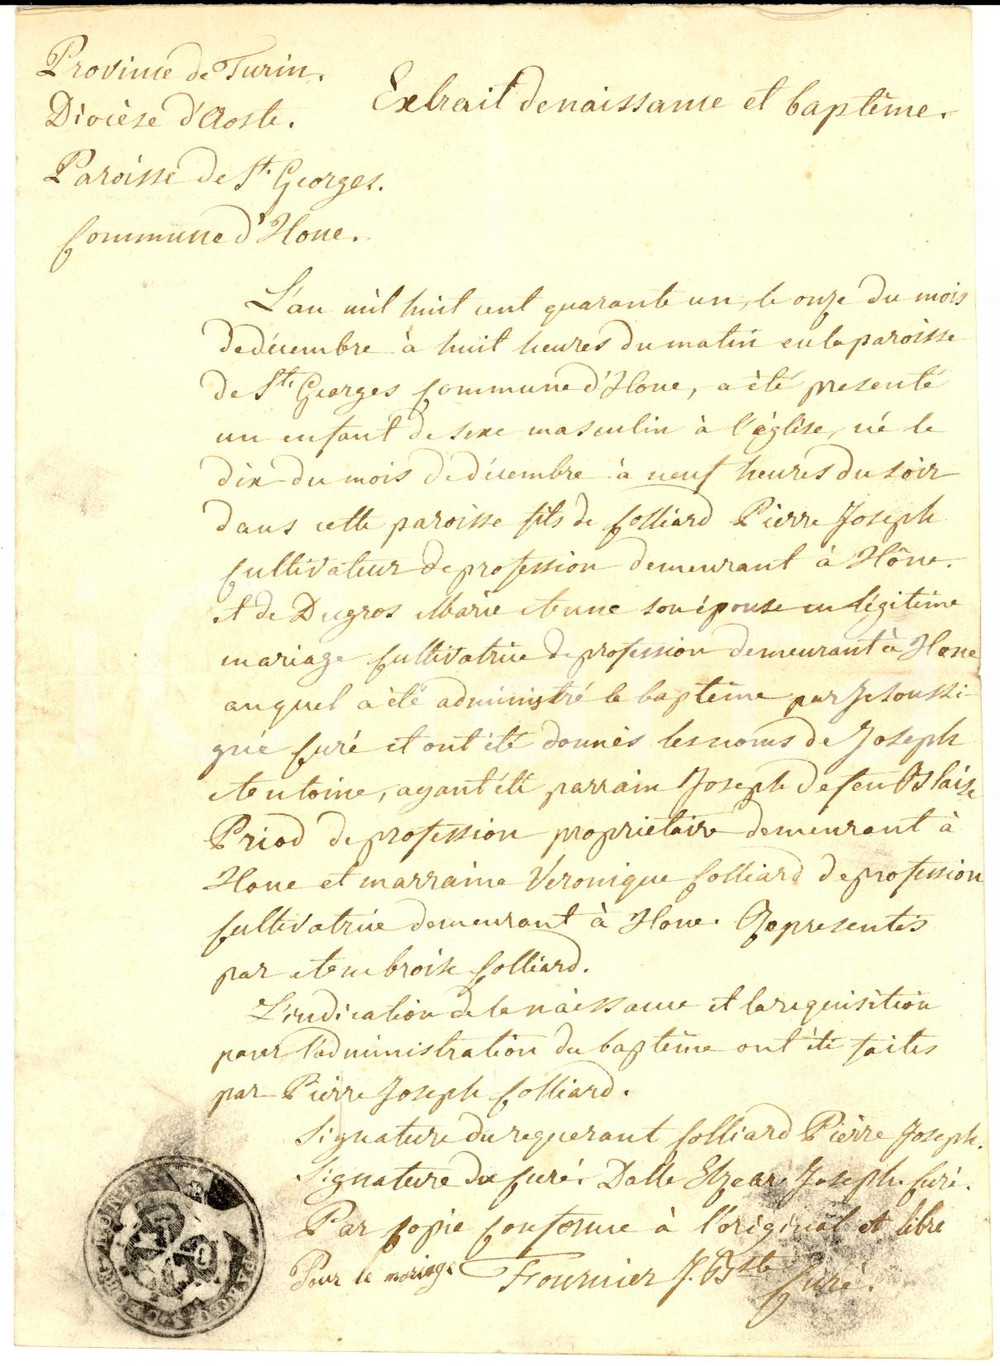 Province de Turin.
Extrait de naissance et baptême.
Diocèse d'Aoste.
Paroisse de St. Georges.
Commune d'Hone.
L'an mil huit cent quarante un, le onze du mois
de décembre à huit heures du matin en la paroisse
de St. Georges Commune d'Hone, a été presenté
un enfant de sexe masculin à l'église, né le
dix du mois de décembre à neuf heures du soir
dans cette paroisse fils de Colliard Pierre Joseph
Cultivateur de profession demeurant à Hône.
et de Dugros Marie Anne son épouse en légitime
mariage Cultivatrice de profession demeurant à Hone
auquel a été administré le baptême par Je soussi-
gné Curé et ont été donnés les noms de Joseph
Antoine, ayant été parrain Joseph de feu Blaise
Priod de profession propriétaire demeurant à
Hone et marraine Veronique Colliard de profession
Cultivatrice demeurant à Hone. Representés
par Ambroise Colliard.
L'indication de la naissance et la requisition
pour l'administration du baptême ont été faites
par Pierre Joseph Colliard.
Signature du requerant Colliard Pierre Joseph.
Signature du Curé. Dalle Elzear Joseph Curé.
Par Copie Conforme à l'original et libre
Pour le mariage Fournier J. Bte Curé.